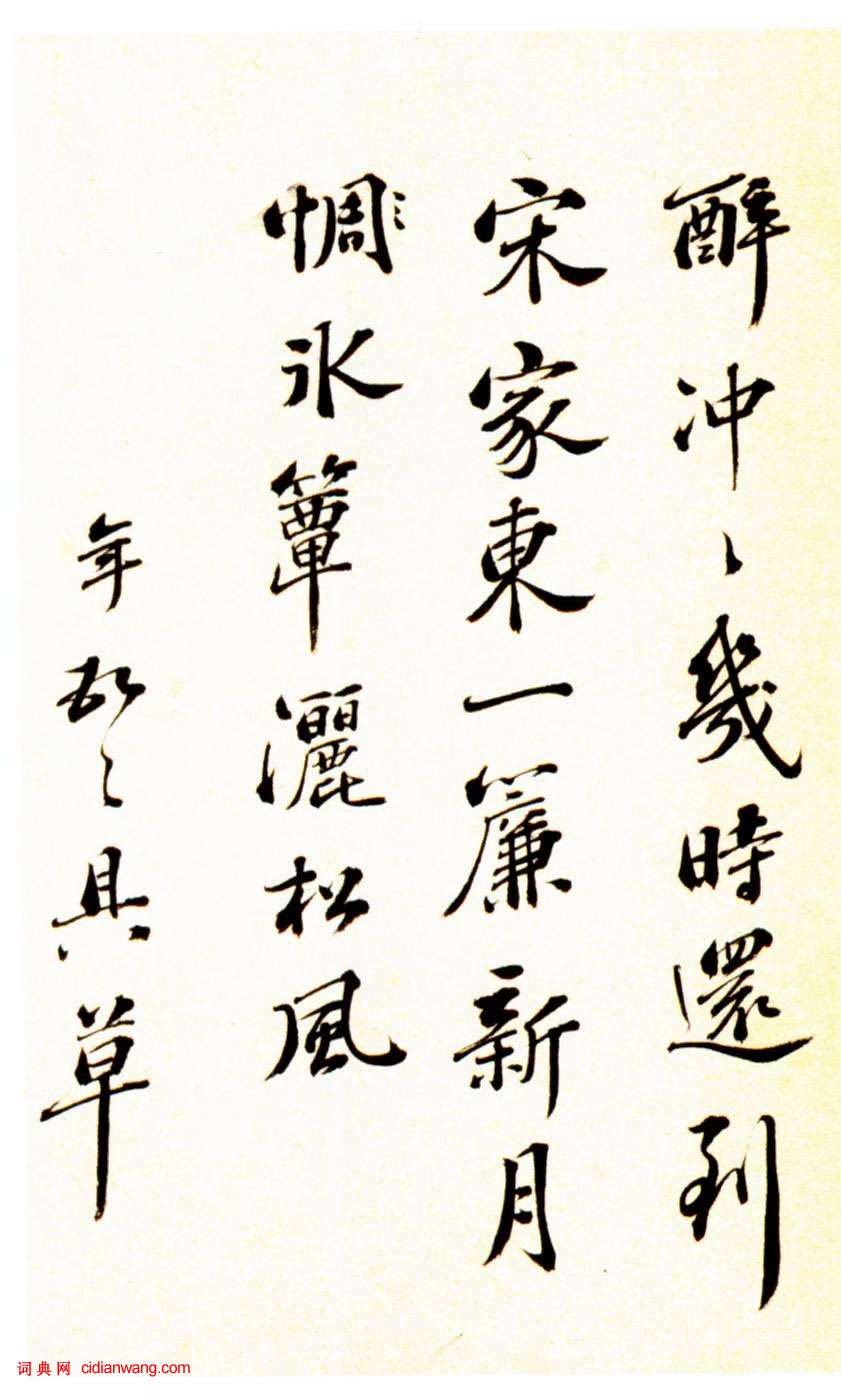 醉冲〻幾時還到
宋家東一簾新月
氷簟灑松風
年具草
词典网 cidianwang.com